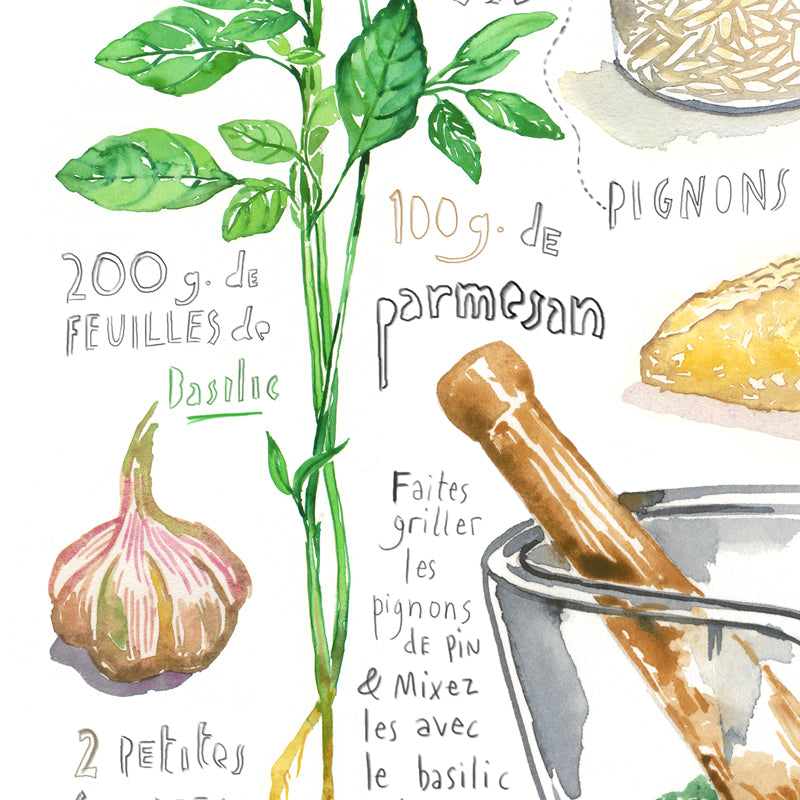 PIGNONS
100g. de
parmesan
200 g. de
FEUILLES de
Basilic
Faites
griller
les
pignons
DE PIN
& Mixez
les avec
le basilic
2 PETITES